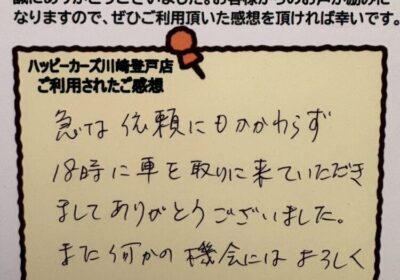 誠にありがとうございました。お客様からのお声が励みに
なりますので、ぜひご利用頂いた感想を頂ければ幸いです。
ハッピーカーズ川崎登戸店
ご利用されたご感想
急な依頼にもかかわらず
18時に車を取りに来ていただき
ましてありがとうございました。
また何かの機会にはよろしく